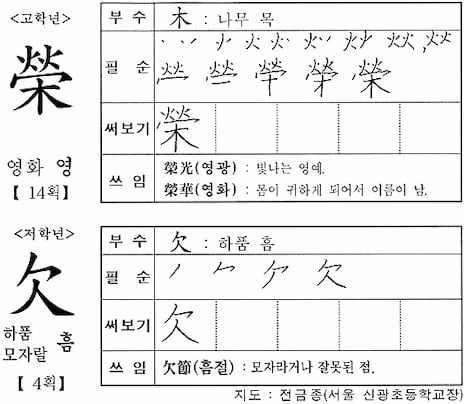 <고학년>
榮
영화 영
【 14획】
부 수 木 : 나무 목
필 순
써보기 榮
쓰 임 榮光(영광) : 빛나는 영예.
榮華(영화) : 몸이 귀하게 되어서 이름이 남.
<저학년>
欠
하품
모자랄 흠
【 4획】
부 수 欠 : 하품 흠
필 순
써보기 欠
쓰 임 欠節(흠절) : 모자라거나 잘못된 점.
지도 : 전금종(서울 신광초등학교장)